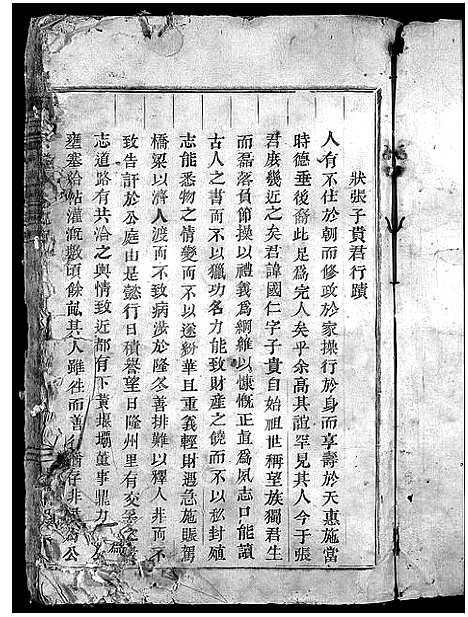 狀張子貴君行蹟
人有不仕於朝而修政於家操行於身而享壽於天惠施當
時德垂後裔此足爲完人矣乎余高其誼罕見其人今于張
君庶幾近之矣君諱國仁字子貴自始祖世稱望族獨君生
而磊落負節操以禮義爲綱維以慷慨正直爲夙志口能讀
古人之書而不以獵功名力能致財產之饒而不以私封殖
志能悉物之情變而不以逐紛華且重義輕財遇急施賑駕
橋梁以濟人渡而不致病涉於隆冬善排難以釋人非而不
致告訐於公庭由是懿行日積譽望日隆州里有交
志道路有共洽之輿情致近都有下黃堰壩董事鼎力
壅塞給帖灌溉數頃餘畝其人雖徃而善 猶存非 公